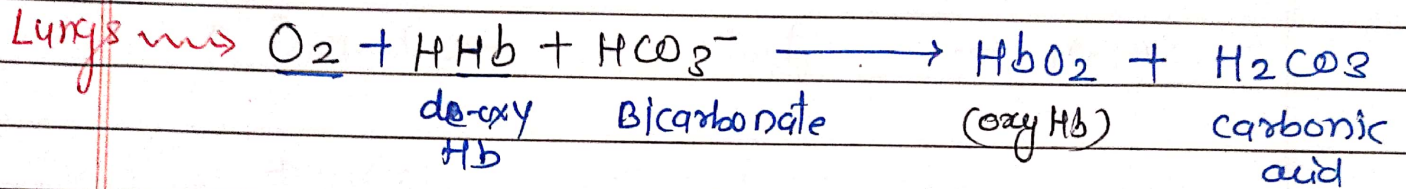 Lungs → O2 + HHb + HCO3⁻ → HbO2 + H2CO3
de-oxy Bicarbonate (oxy Hb) carbonic
Hb acid